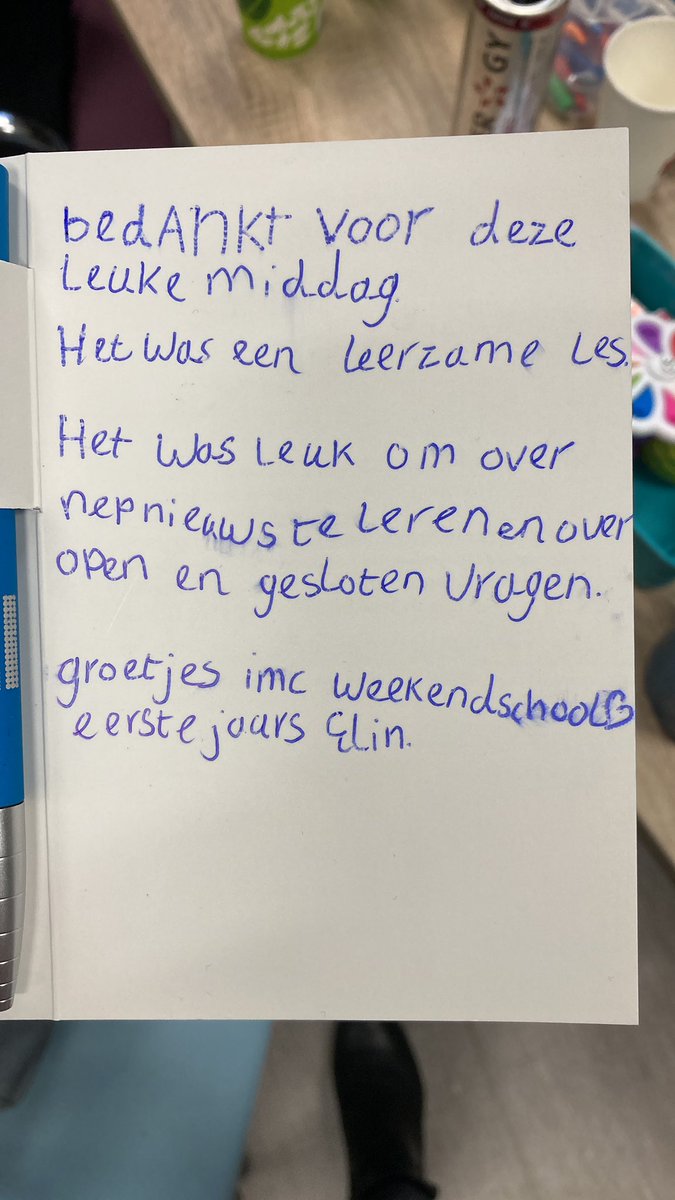 bedANKt voor deze
Leuke middag.
Het was een leerzame les.
Het was Leuk om over
nepnieuws te Leren en over
open en gesloten vragen.
groetjes imc weekendschool
eerstejaars Elin.